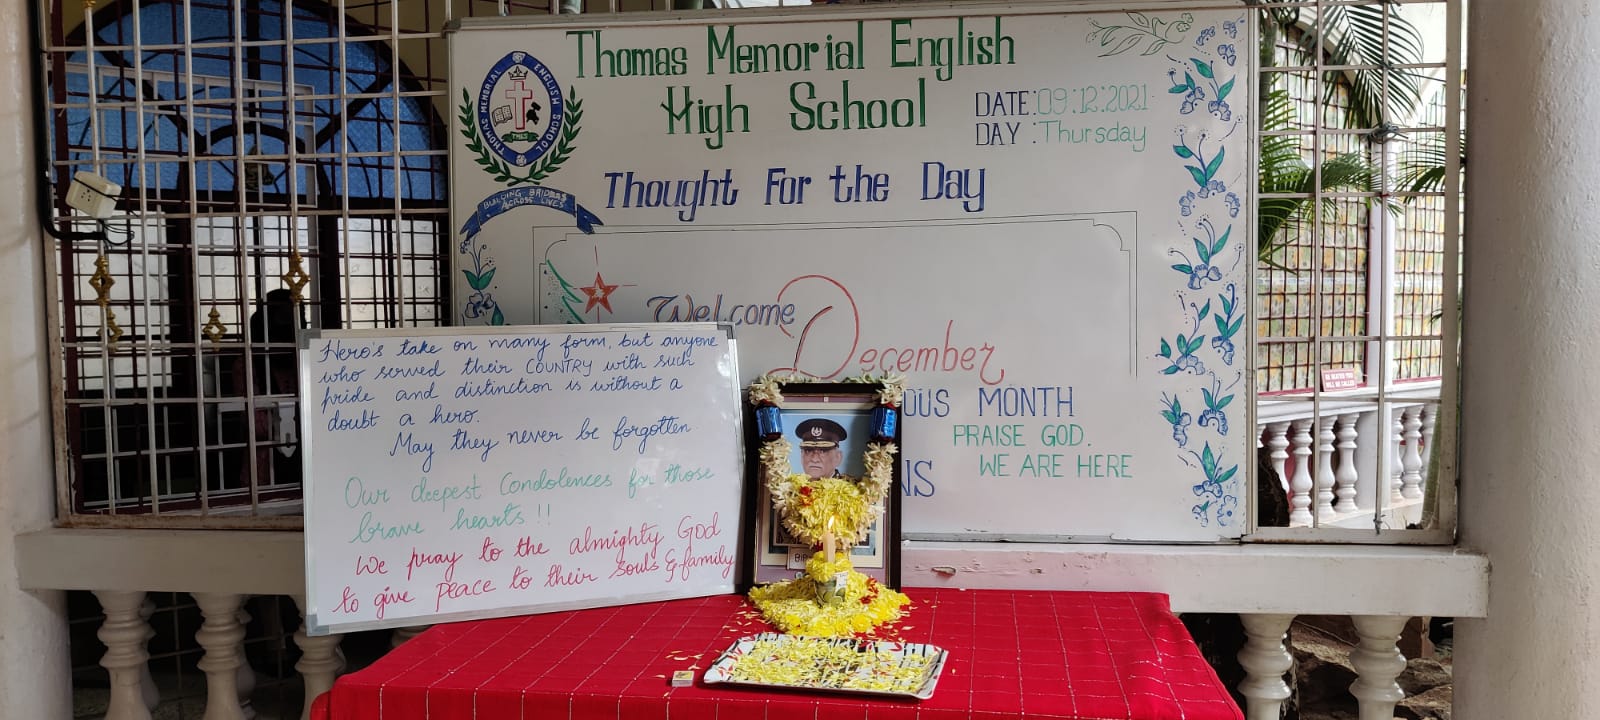 Thomas Memorial English
High School
THOMAS MEMORIAL ENGLISH SCHOOL
TMES
BUILDING BRIDGES
ACROSS LIVES
DATE:09:12:2021
DAY :Thursday
Thought For the Day
Welcome
December
OUS MONTH
PRAISE GOD.
WE ARE HERE
NS
Hero's take on many form, but anyone
who served their COUNTRY with such
pride and distinction is without a
doubt a hero.
May they never be forgotten
Our deepest Condolences for those
brave hearts!!
We pray to the almighty God
to give peace to their souls & family